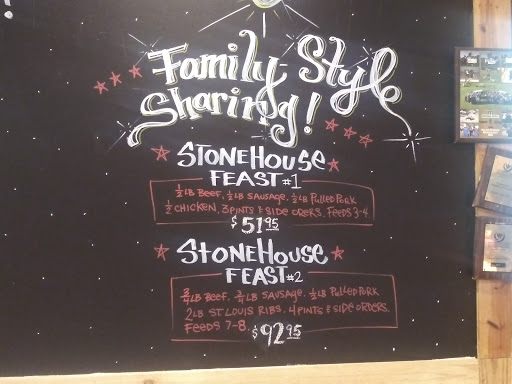 Family Style
Sharing!
STONEHOUSE
FEAST #1
1/2 LB BEEF, 1/2 LB SAUSAGE, 1/2 LB PULLED PORK
1/2 CHICKEN, 3 PINTS & SIDE ORERS. FEEDS 3-4
$51.95
STONEHOUSE
FEAST #2
3/4 LB BEEF, 3/4 LB SAUSAGE, 1/2 LB PULLED PORK
2 LB ST LOUIS RIBS, 4 PINTS & SIDE ORDERS.
FEEDS 7-8. $92.95